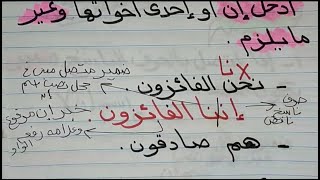 أدخل إن أو إحدى أخواتها وغير
ما يلزم.
نا
- نحن الفائزون.
ضمير متصل مبني في
محل نصب اسم
إننا الفائزون.
خبر إن مرفوع
وعلامة رفعه
الواو
حرف
ناسخ
ناقص
- هم صادقون.